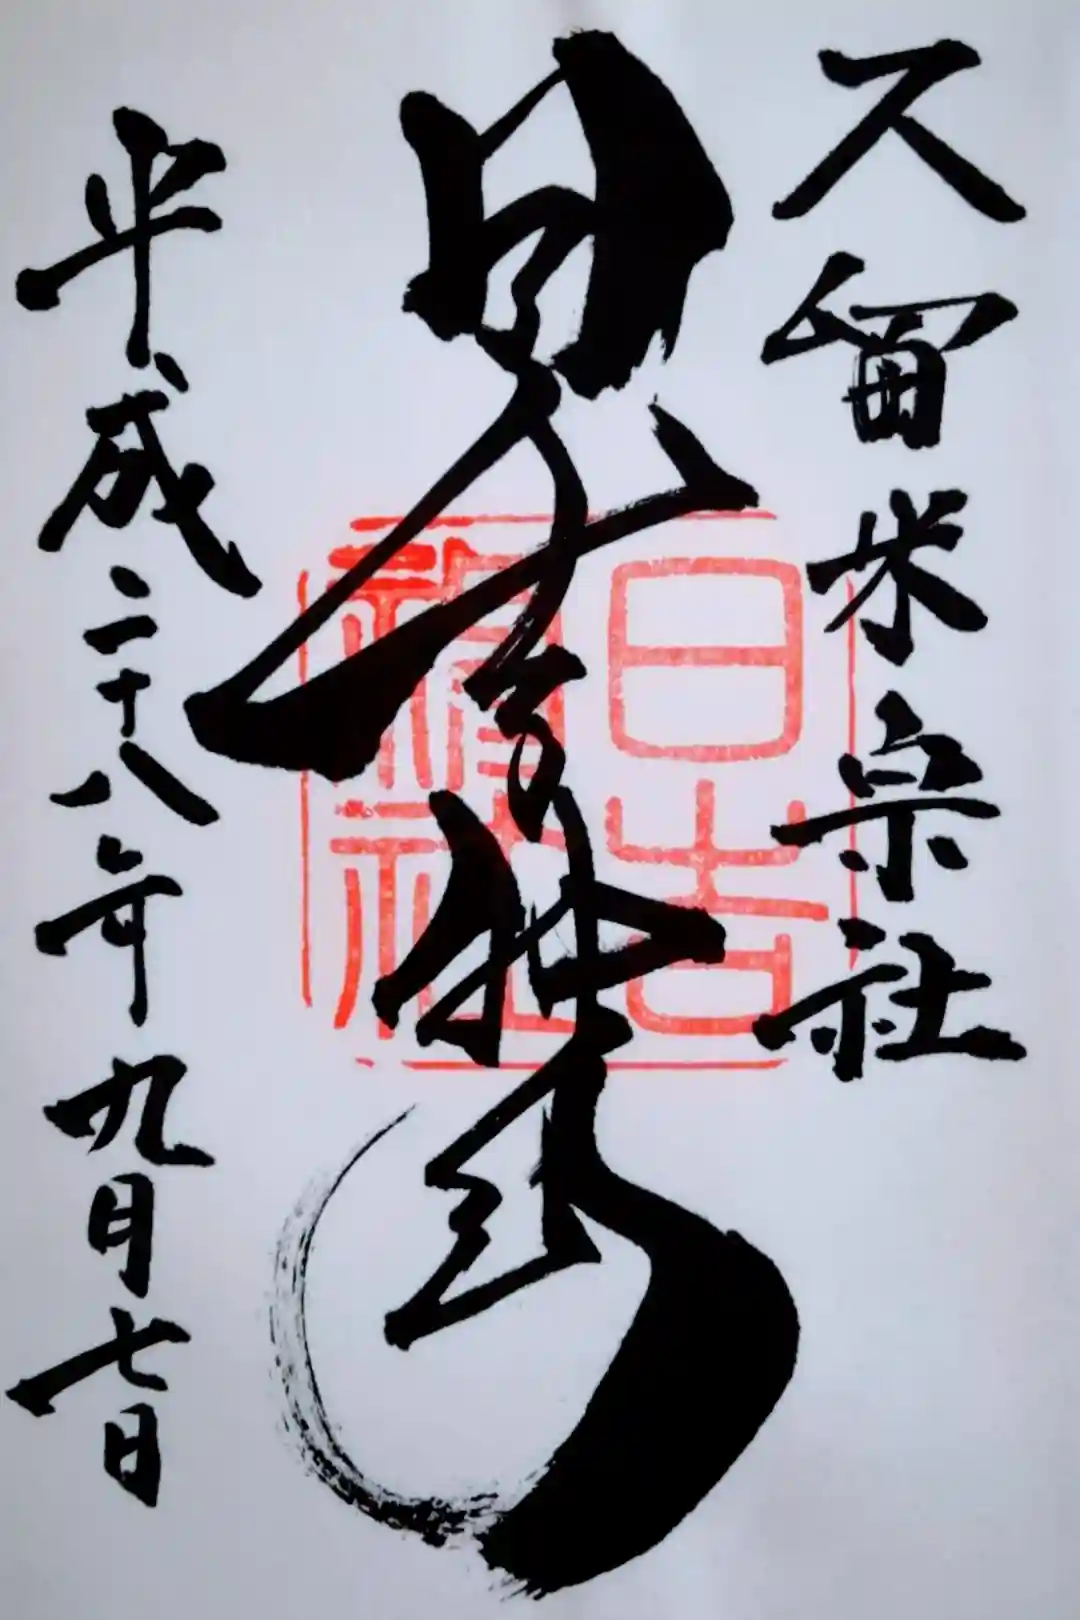 久留米宗社
日吉神社
日吉神社
平成二十八年九月七日